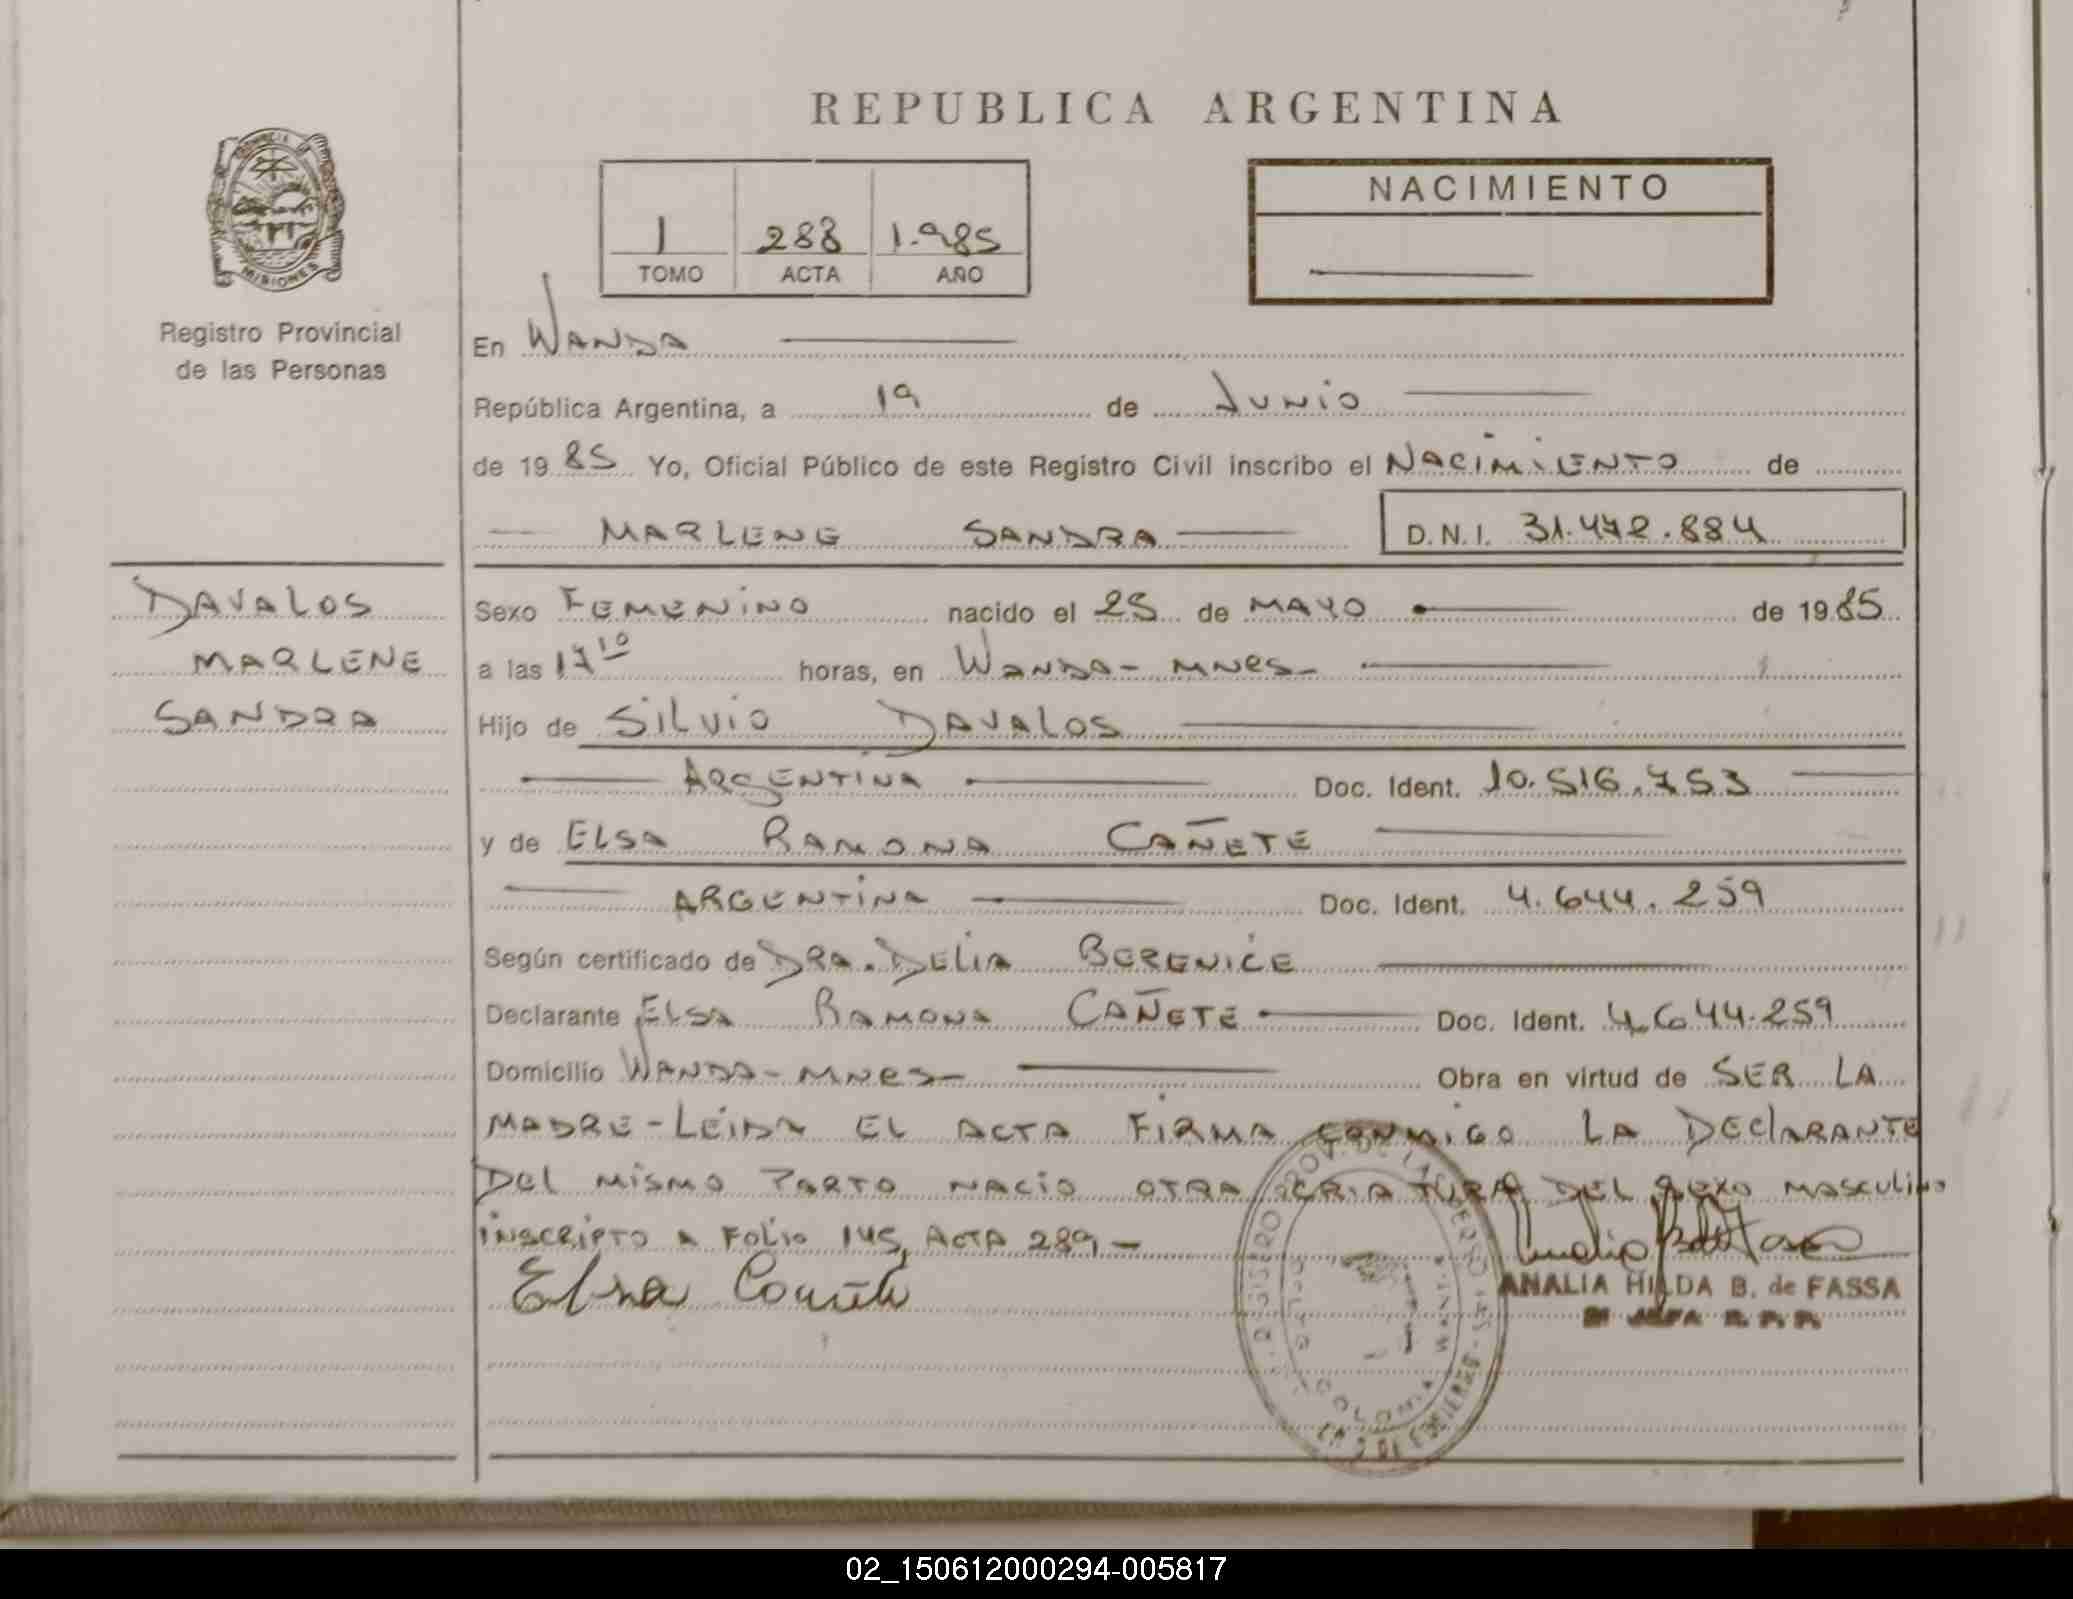 REPUBLICA ARGENTINA
PROVINCIA
MISIONES
Registro Provincial
de las Personas
1 288 1.985
TOMO ACTA AÑO
NACIMIENTO
En WANDA
República Argentina, a 19 de JUNIO
de 1985 Yo, Oficial Público de este Registro Civil inscribo el NACIMIENTO de
MARLENE SANDRA D.N.I. 31.472.884
DAVALOS
MARLENE
SANDRA
Sexo FEMENINO nacido el 25 de MAYO de 1985
a las 17 10 horas, en WANDA - MNES -
Hijo de SILVIO DAVALOS
ARGENTINA Doc. Ident. 10.516.753
y de ELSA RAMONA CAÑETE
ARGENTINA Doc. Ident. 4.644.259
Según certificado de DRA. DELIA BERENICE
Declarante ELSA RAMONA CAÑETE Doc. Ident. 4.644.259
Domicilio WANDA - MNES - Obra en virtud de SER LA
MADRE - LEIDA EL ACTA FIRMA CONMIGO LA DECLARANTE
DEL MISMO PARTO NACIO OTRA CRIATURA DEL SEXO MASCULINO
INSCRIPTO A FOLIO 145, ACTA 289 -
Elsa Cañete
ANALIA HILDA B. de FASSA
02_150612000294-005817